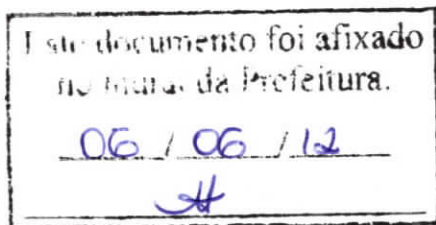 Este documento foi afixado
no mural da Prefeitura.
06 / 06 / 12